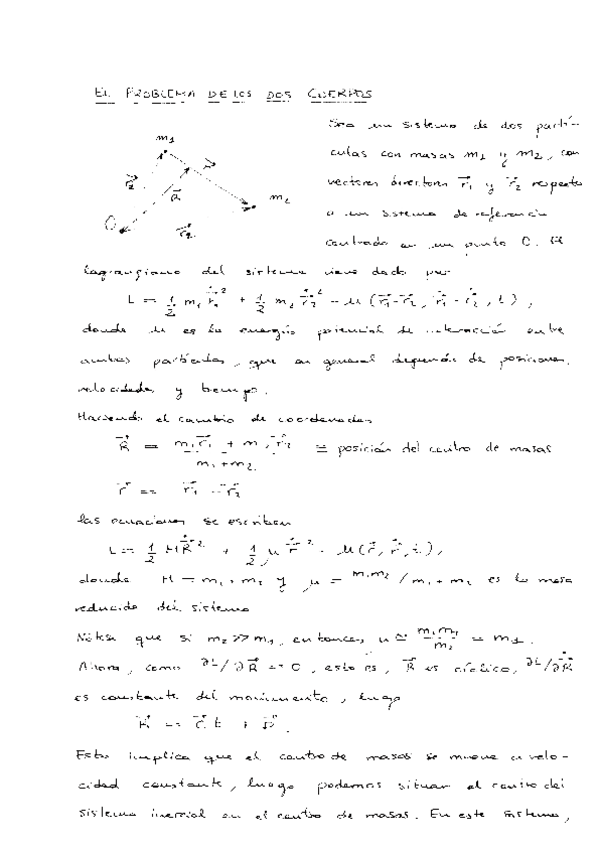 EL PROBLEMA DE LOS DOS CUERPOS
Sea un sistema de dos partí-
culas con masas m1 y m2, con
vectores directores r⃗1 y r⃗2 respecto
a un sistema de referencia
centrado en un punto O. El
m1
m2
r⃗
R⃗
r⃗2
O
lagrangiano del sistema viene dado por
L = 1/2 m1 ṙ⃗1² + 1/2 m2 ṙ⃗2² - U (r⃗1-r⃗2, ṙ⃗1-ṙ⃗2, t),
donde U es la energía potencial de interacción entre
ambas partículas, que en general depende de posiciones,
velocidades y tiempo.
Haciendo el cambio de coordenadas
R⃗ = m1 r⃗1 + m2 r⃗2 / m1+m2 = posición del centro de masas
r⃗ = r⃗1 - r⃗2
las ecuaciones se escriben
L = 1/2 M Ṙ⃗² + 1/2 μ ṙ⃗² - U(r⃗, ṙ⃗, t),
donde M = m1+m2 y μ = m1m2/m1+m2 es la masa
reducida del sistema
Nótese que si m2>>m1, entonces, μ ≃ m1m2/m2 = m1.
Ahora, como ∂L/∂R⃗ = 0, esto es, R⃗ es cíclico, ∂L/∂Ṙ⃗
es constante del movimiento, luego
R⃗ = C⃗ t + D⃗.
Esto implica que el centro de masas se mueve a velo-
cidad constante, luego podemos situar el centro del
sistema inercial en el centro de masas. En este sistema,